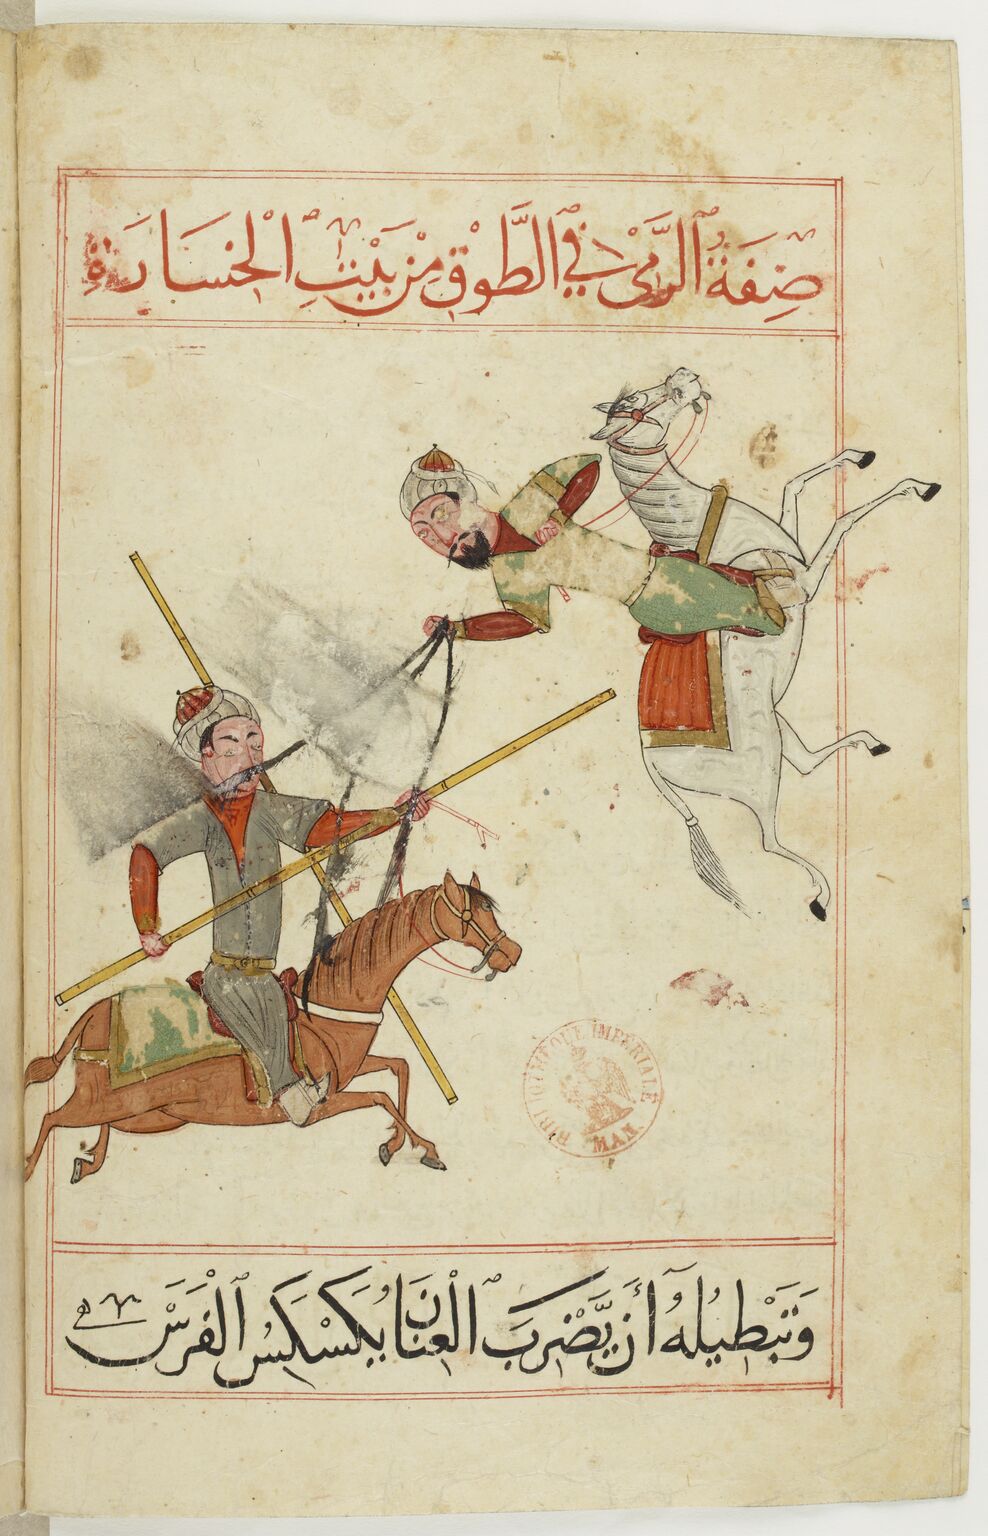 صِفَةُ الرَّمْىِ فِي الطَّوْقِ مِنْ بَيْتِ الْخسَارَةِ
BIBLIOTHEQUE IMPERIALE MAN
وَتَبْطِيلُهُ أَنْ يَّضْرِبَ الْعِنَانَ يُكَسْكِسُ الْفَرَسْ